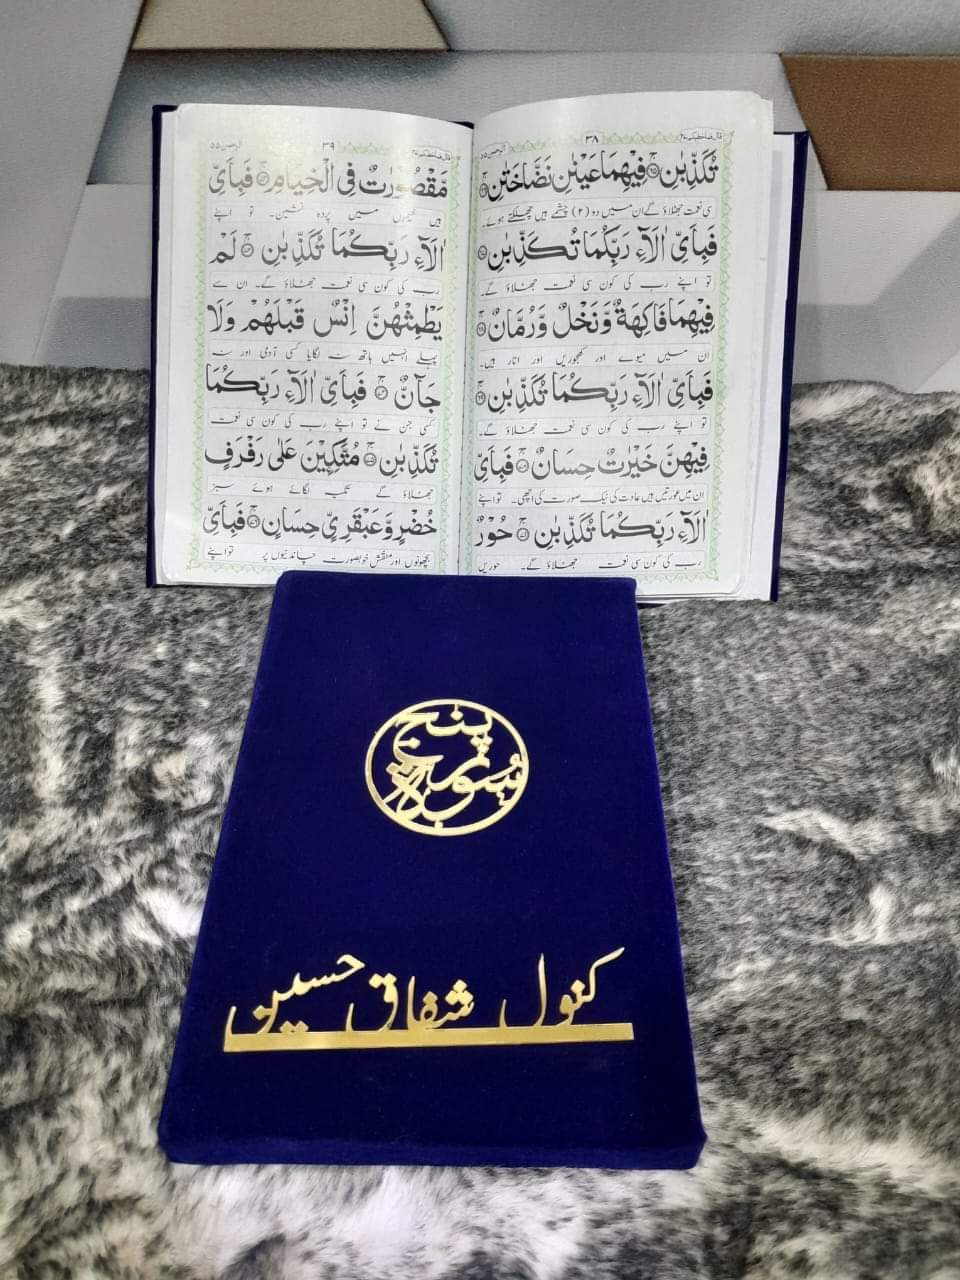 قال فما خطبکم ٢٧
٣٨
الرحمن ٥٥
تُكَذِّبٰنِ ۞ فِيْهِمَا عَيْنٰنِ نَضَّاخَتٰنِ ۞
سی نعمت جھٹلاؤ گے ان میں دو (٢) چشمے ہیں چھلکتے ہوئے۔
فَبِاَىِّ اٰلَآءِ رَبِّكُمَا تُكَذِّبٰنِ ۞
تو اپنے رب کی کون سی نعمت جھٹلاؤ گے۔
فِيْهِمَا فَاكِهَةٌ وَّنَخْلٌ وَّرُمَّانٌ ۞
ان میں میوے اور کھجوریں اور انار ہیں۔
فَبِاَىِّ اٰلَآءِ رَبِّكُمَا تُكَذِّبٰنِ ۞
تو اپنے رب کی کون سی نعمت جھٹلاؤ گے۔
فِيْهِنَّ خَيْرٰتٌ حِسَانٌ ۞ فَبِاَىِّ
ان میں عورتیں ہیں عادت کی نیک صورت کی اچھی۔ تو اپنے
اٰلَآءِ رَبِّكُمَا تُكَذِّبٰنِ ۞ حُوْرٌ
رب کی کون سی نعمت جھٹلاؤ گے۔ حوریں
قال فما خطبکم ٢٧
٣٩
الرحمن ٥٥
مَّقْصُوْرٰتٌ فِى الْخِيَامِ ۞ فَبِاَىِّ
ہیں خیموں میں پردہ نشین۔ تو اپنے
اٰلَآءِ رَبِّكُمَا تُكَذِّبٰنِ ۞ لَمْ
رب کی کون سی نعمت جھٹلاؤ گے۔ ان سے
يَطْمِثْهُنَّ اِنْسٌ قَبْلَهُمْ وَلَا
پہلے انہیں ہاتھ نہ لگایا کسی آدمی اور نہ
جَآنٌّ ۞ فَبِاَىِّ اٰلَآءِ رَبِّكُمَا
کسی جن نے تو اپنے رب کی کون سی نعمت
تُكَذِّبٰنِ ۞ مُتَّكِـِٕيْنَ عَلٰى رَفْرَفٍ
جھٹلاؤ گے تکیہ لگائے ہوئے سبز
خُضْرٍ وَّعَبْقَرِىٍّ حِسَانٍ ۞ فَبِاَىِّ
بچھونوں اور منقش خوبصورت چاندنیوں پر تو اپنے
پنج
سورہ
کنول شفاق حسین